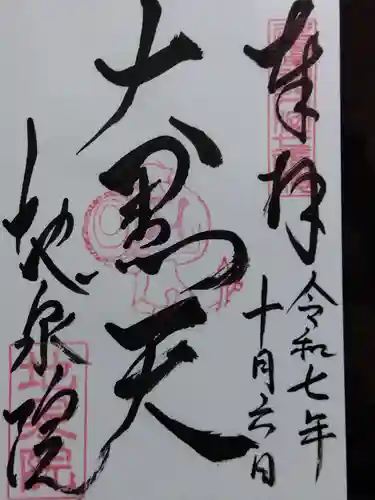 奉拝
令和七年
十月六日
大黒天
地泉院
地泉院